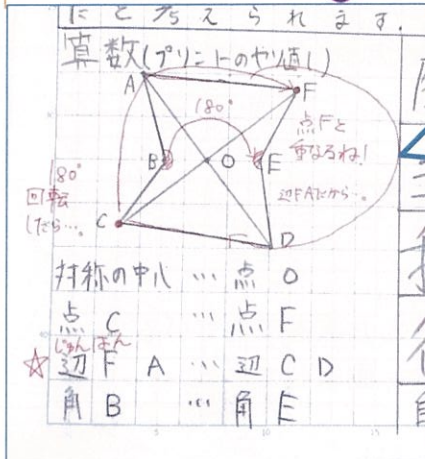 にと考えられます。
算数(プリントのヤリ直し)
A
F
180°
点Fと
重なるね!
B
O
E
辺FAだから…。
180°
回転
したら…。
C
D
対称の中心 … 点 O
点 C … 点 F
じゅんばん
☆辺 F A … 辺 C D
角 B … 角 E